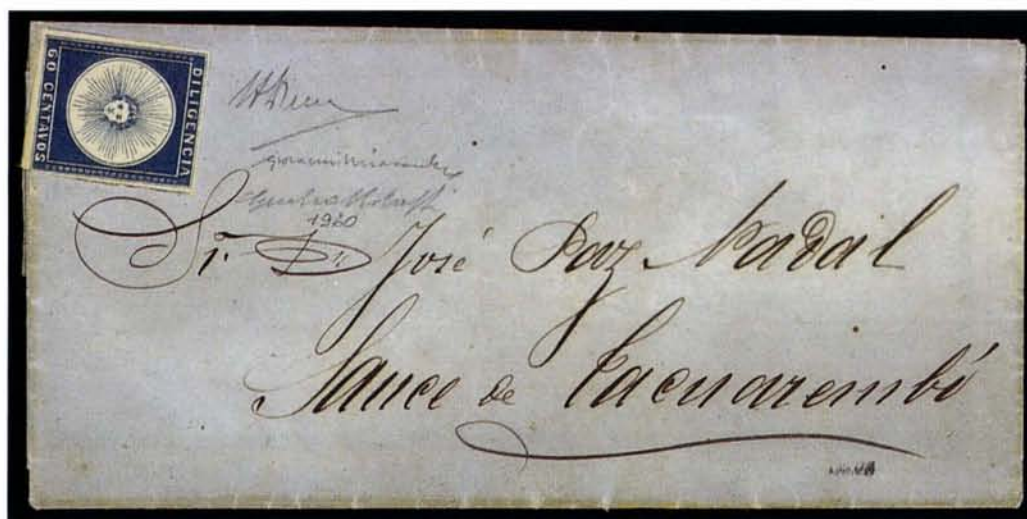 DILIGENCIA
60 CENTAVOS
1920
Sr. Dn. José Paz Nadal
Sauce de Tacuarembó